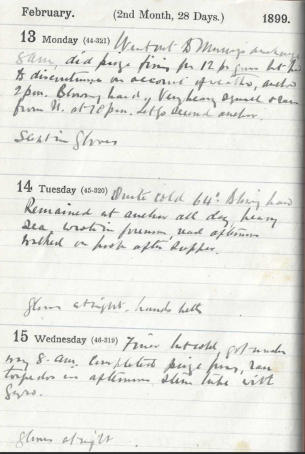 February. (2nd Month, 28 Days.) 1899.
13 Monday (44-321) Went out to
8 am, did prize firing for 12 pr guns but had
to discontinue on account of weather,
2 pm. Blowing hard & Very heavy squall & rain
from N. at pm. Let go second anchor.
Slept in Gloves
14 Tuesday (45-320) Quite cold 64° Blowing hard
Remained at anchor all day heavy
sea. wrote in forenoon, read afternoon
walked on poop after supper.
gloves at night. hands better
15 Wednesday (46-319) Finer but cold, got under
way 8 am. Completed prize firing, ran
torpedos in afternoon stern tube with
Gyro.
gloves at night